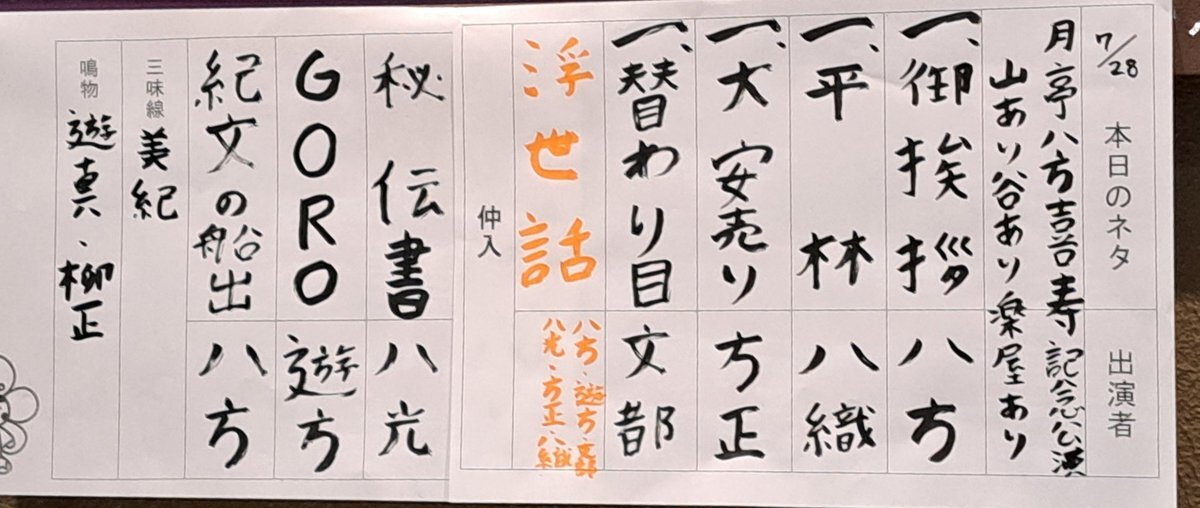 7/28 本日のネタ 出演者
月亭八方喜寿 記念公演
山あり谷あり楽屋あり
一、御挨拶 八方
一、平林 八織
一、大安売り 方正
一、替わり目 文都
浮世話 八方、遊方、文都
八光、方正、八織
仲入
秘伝書 八光
GORO 遊方
紀文の船出 八方
三味線 美紀
鳴物 遊真、柳正